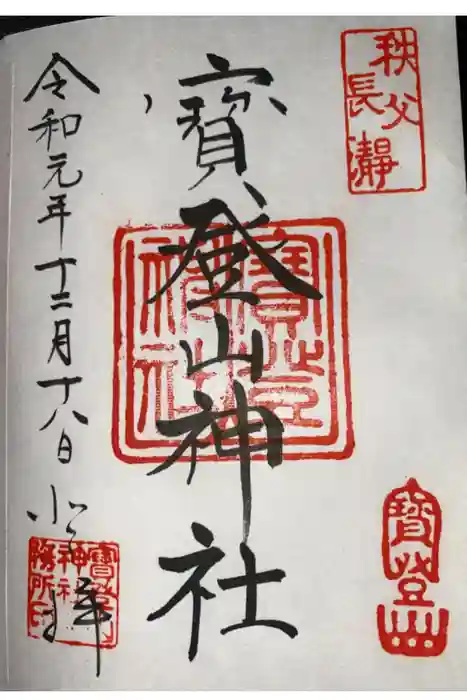 秩父
長瀞
寳登山神社
寶登山
神社
寶登山
令和元年十二月十八日
拝
寶登山
神社
務所印